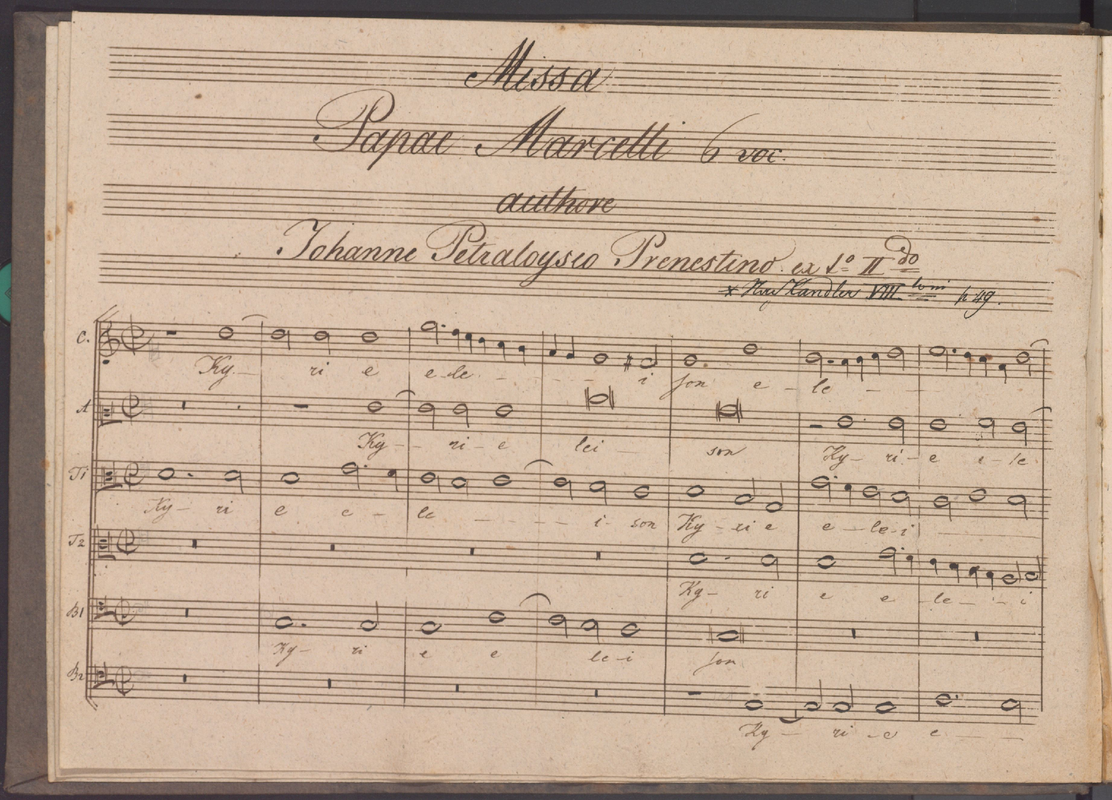 Missa
Papae Marcelli 6 voc.
authore
Johanne Petraloysio Prenestino. ex Lo. II do
x Kandler VIII tom p 49.
C.
Ky — ri e e-le - - - - i son e — le - -
A
Ky — ri — e lei — son Ky — ri — e e - le
T1
Ky — ri e e — le - - - i - son Ky — ri e e — le - i
T2
Ky — ri e e — le — - i
B1
Ky — ri e e le - i son
B2
Ky — ri - e e —